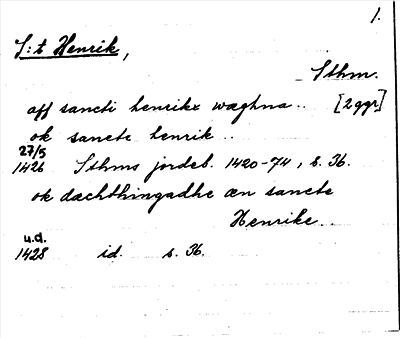 1.
S:t Henrik,
Sthm.
aff sancti henrikx wæghna.. [2 ggr]
ok sancte henrik..
27/5
1426 Sthms jordeb. 1420-74, s. 36.
ok dæchthingadhe æn sancte
Henrike..
u.d.
1428 id. s. 36.